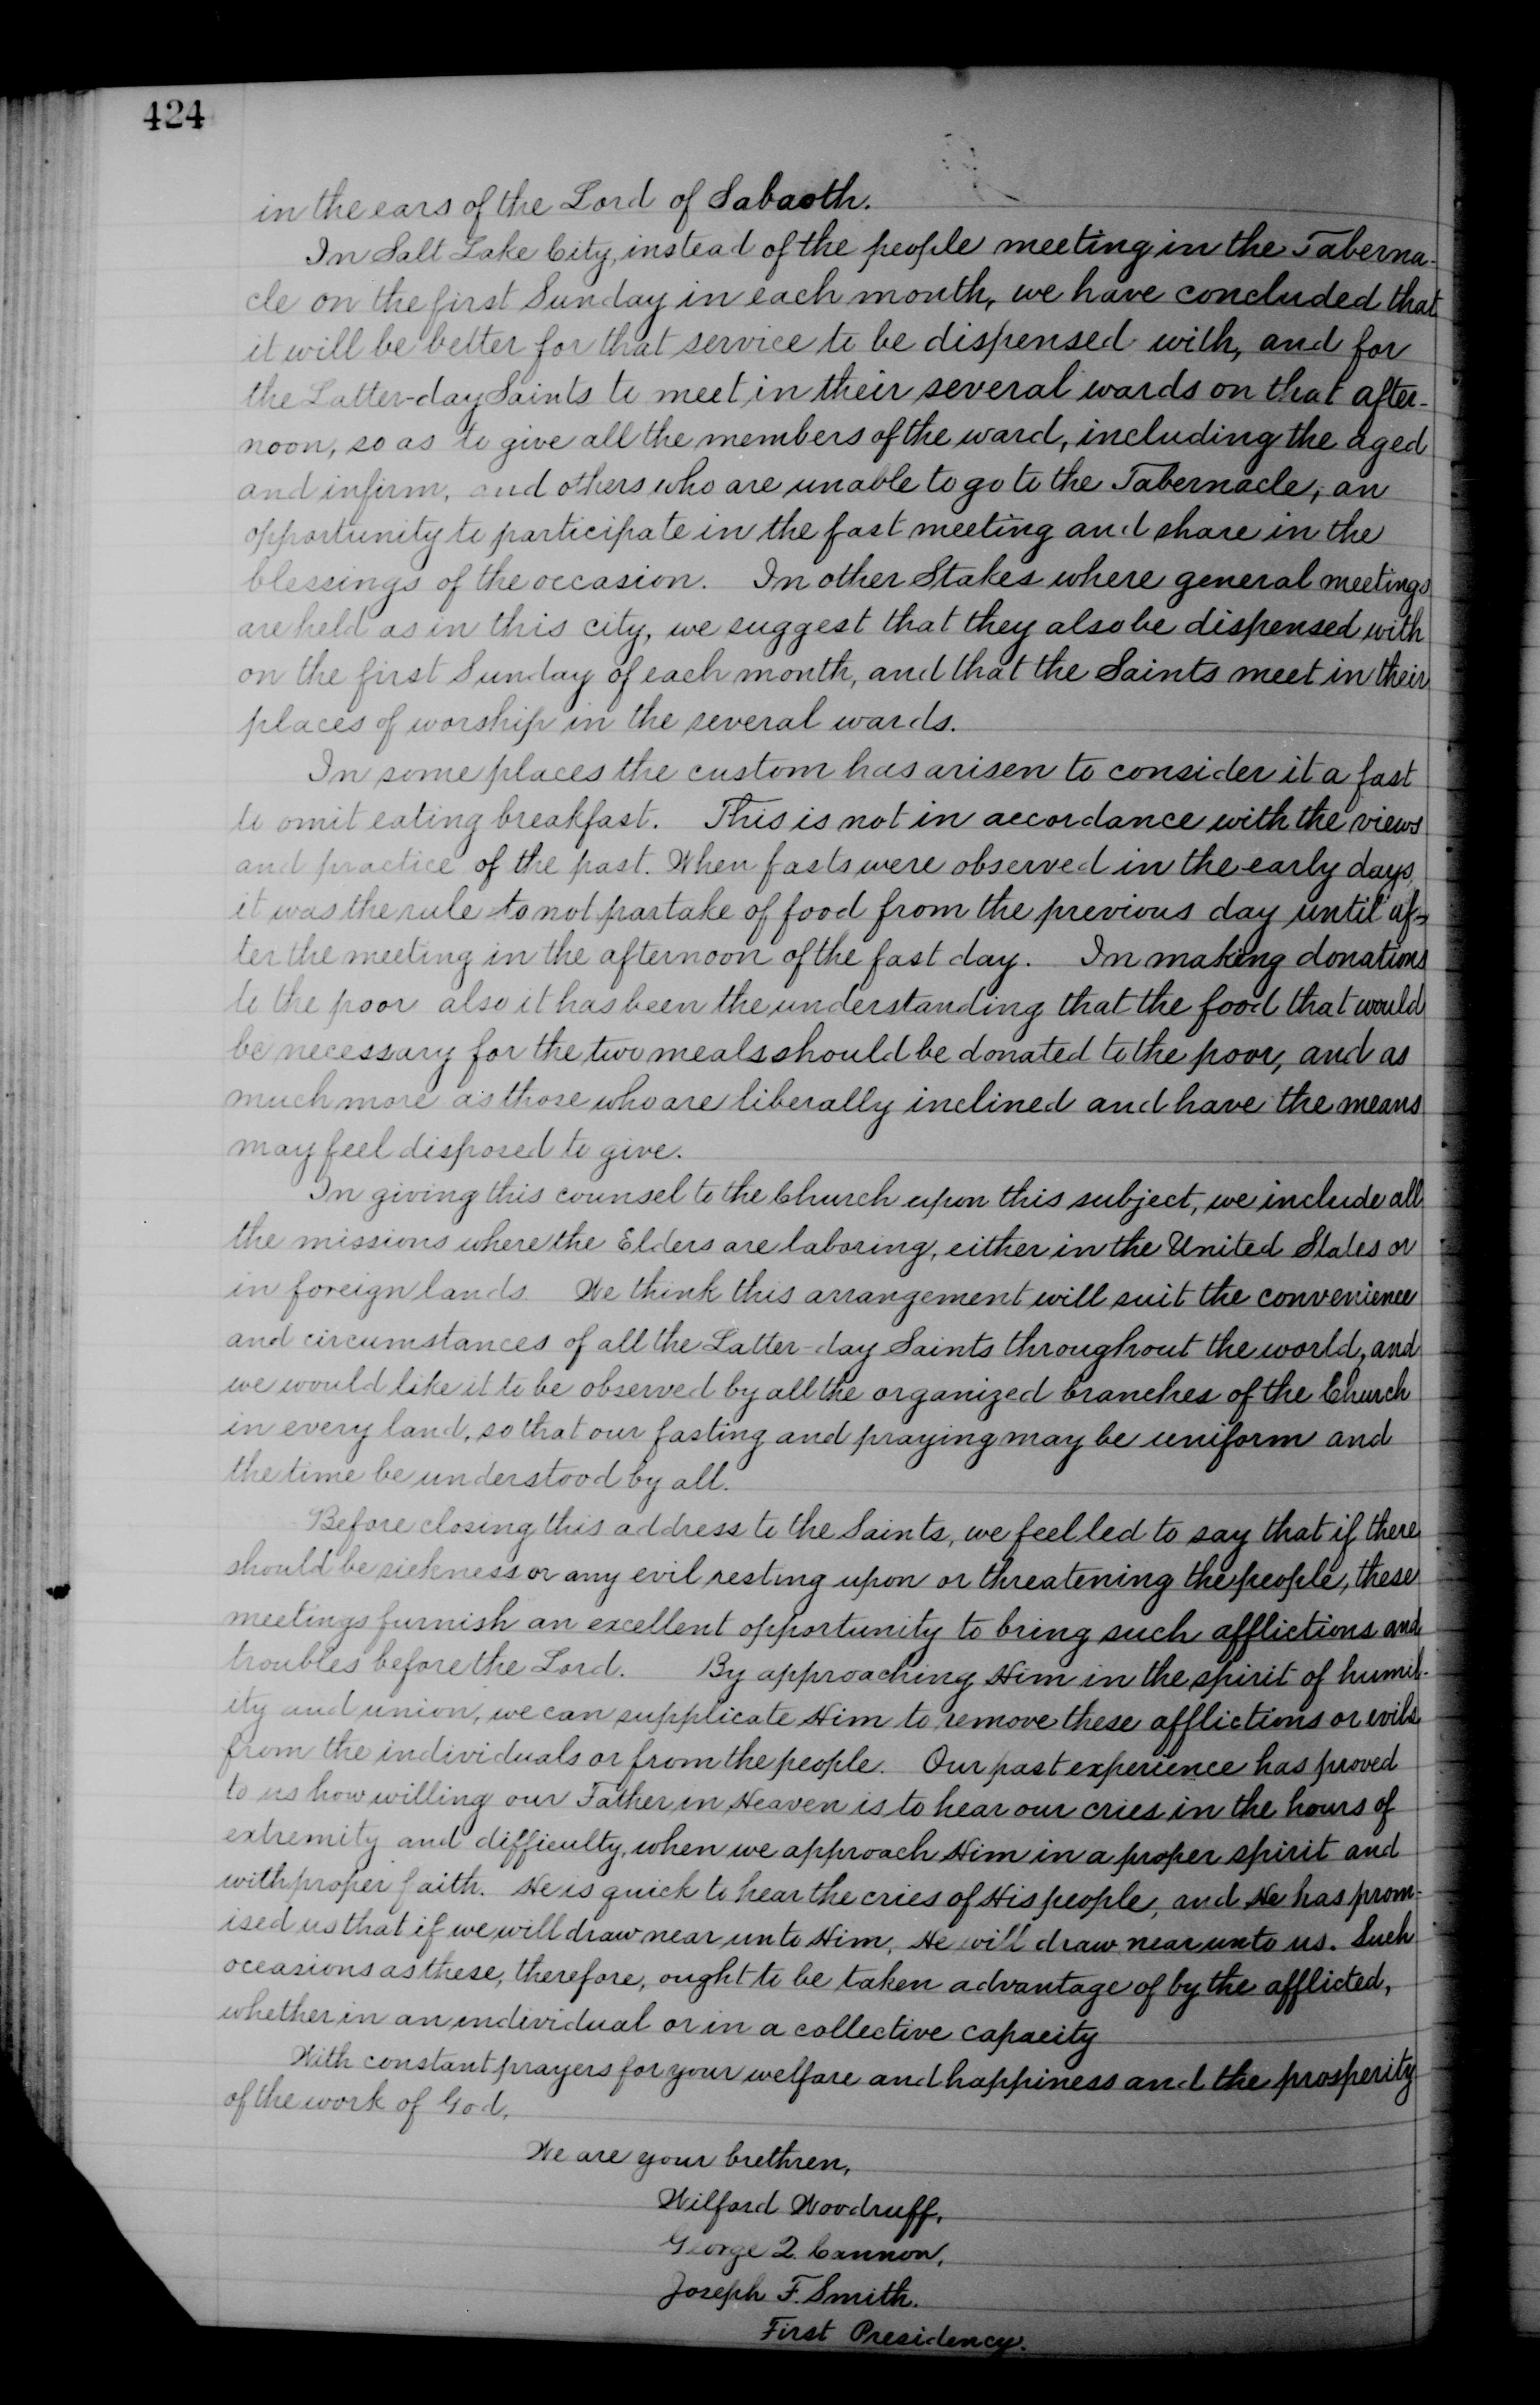 424
in the ears of the Lord of Sabaoth.
In Salt Lake City, instead of the people meeting in the Taberna-
cle on the first Sunday in each month, we have concluded that
it will be better for that service to be dispensed with, and for
the Latter-day Saints to meet in their several wards on that after-
noon, so as to give all the members of the ward, including the aged
and infirm, and others who are unable to go to the Tabernacle, an
opportunity to participate in the fast meeting and share in the
blessings of the occasion. In other Stakes where general meetings
are held as in this city, we suggest that they also be dispensed with
on the first Sunday of each month, and that the Saints meet in their
places of worship in the several wards.
In some places the custom has arisen to consider it a fast
to omit eating breakfast. This is not in accordance with the views
and practice of the past. When fasts were observed in the early days,
it was the rule to not partake of food from the previous day until af-
ter the meeting in the afternoon of the fast day. In making donations
to the poor also it has been the understanding that the food that would
be necessary for the two meals should be donated to the poor, and as
much more as those who are liberally inclined and have the means
may feel disposed to give.
In giving this counsel to the Church upon this subject, we include all
the missions where the Elders are laboring, either in the United States or
in foreign lands. We think this arrangement will suit the convenience
and circumstances of all the Latter-day Saints throughout the world, and
we would like it to be observed by all the organized branches of the Church
in every land, so that our fasting and praying may be uniform and
the time be understood by all.
Before closing this address to the Saints, we feel led to say that if there
should be sickness or any evil resting upon or threatening the people, these
meetings furnish an excellent opportunity to bring such afflictions and
troubles before the Lord. By approaching Him in the spirit of humil-
ity and union, we can supplicate Him to remove these afflictions or evils
from the individuals or from the people. Our past experience has proved
to us how willing our Father in Heaven is to hear our cries in the hours of
extremity and difficulty, when we approach Him in a proper spirit and
with proper faith. He is quick to hear the cries of His people, and He has prom-
ised us that if we will draw near unto Him, He will draw near unto us. Such
occasions as these, therefore, ought to be taken advantage of by the afflicted,
whether in an individual or in a collective capacity
With constant prayers for your welfare and happiness and the prosperity
of the work of God,
We are your brethren,
Wilford Woodruff,
George Q. Cannon,
Joseph F. Smith.
First Presidency.